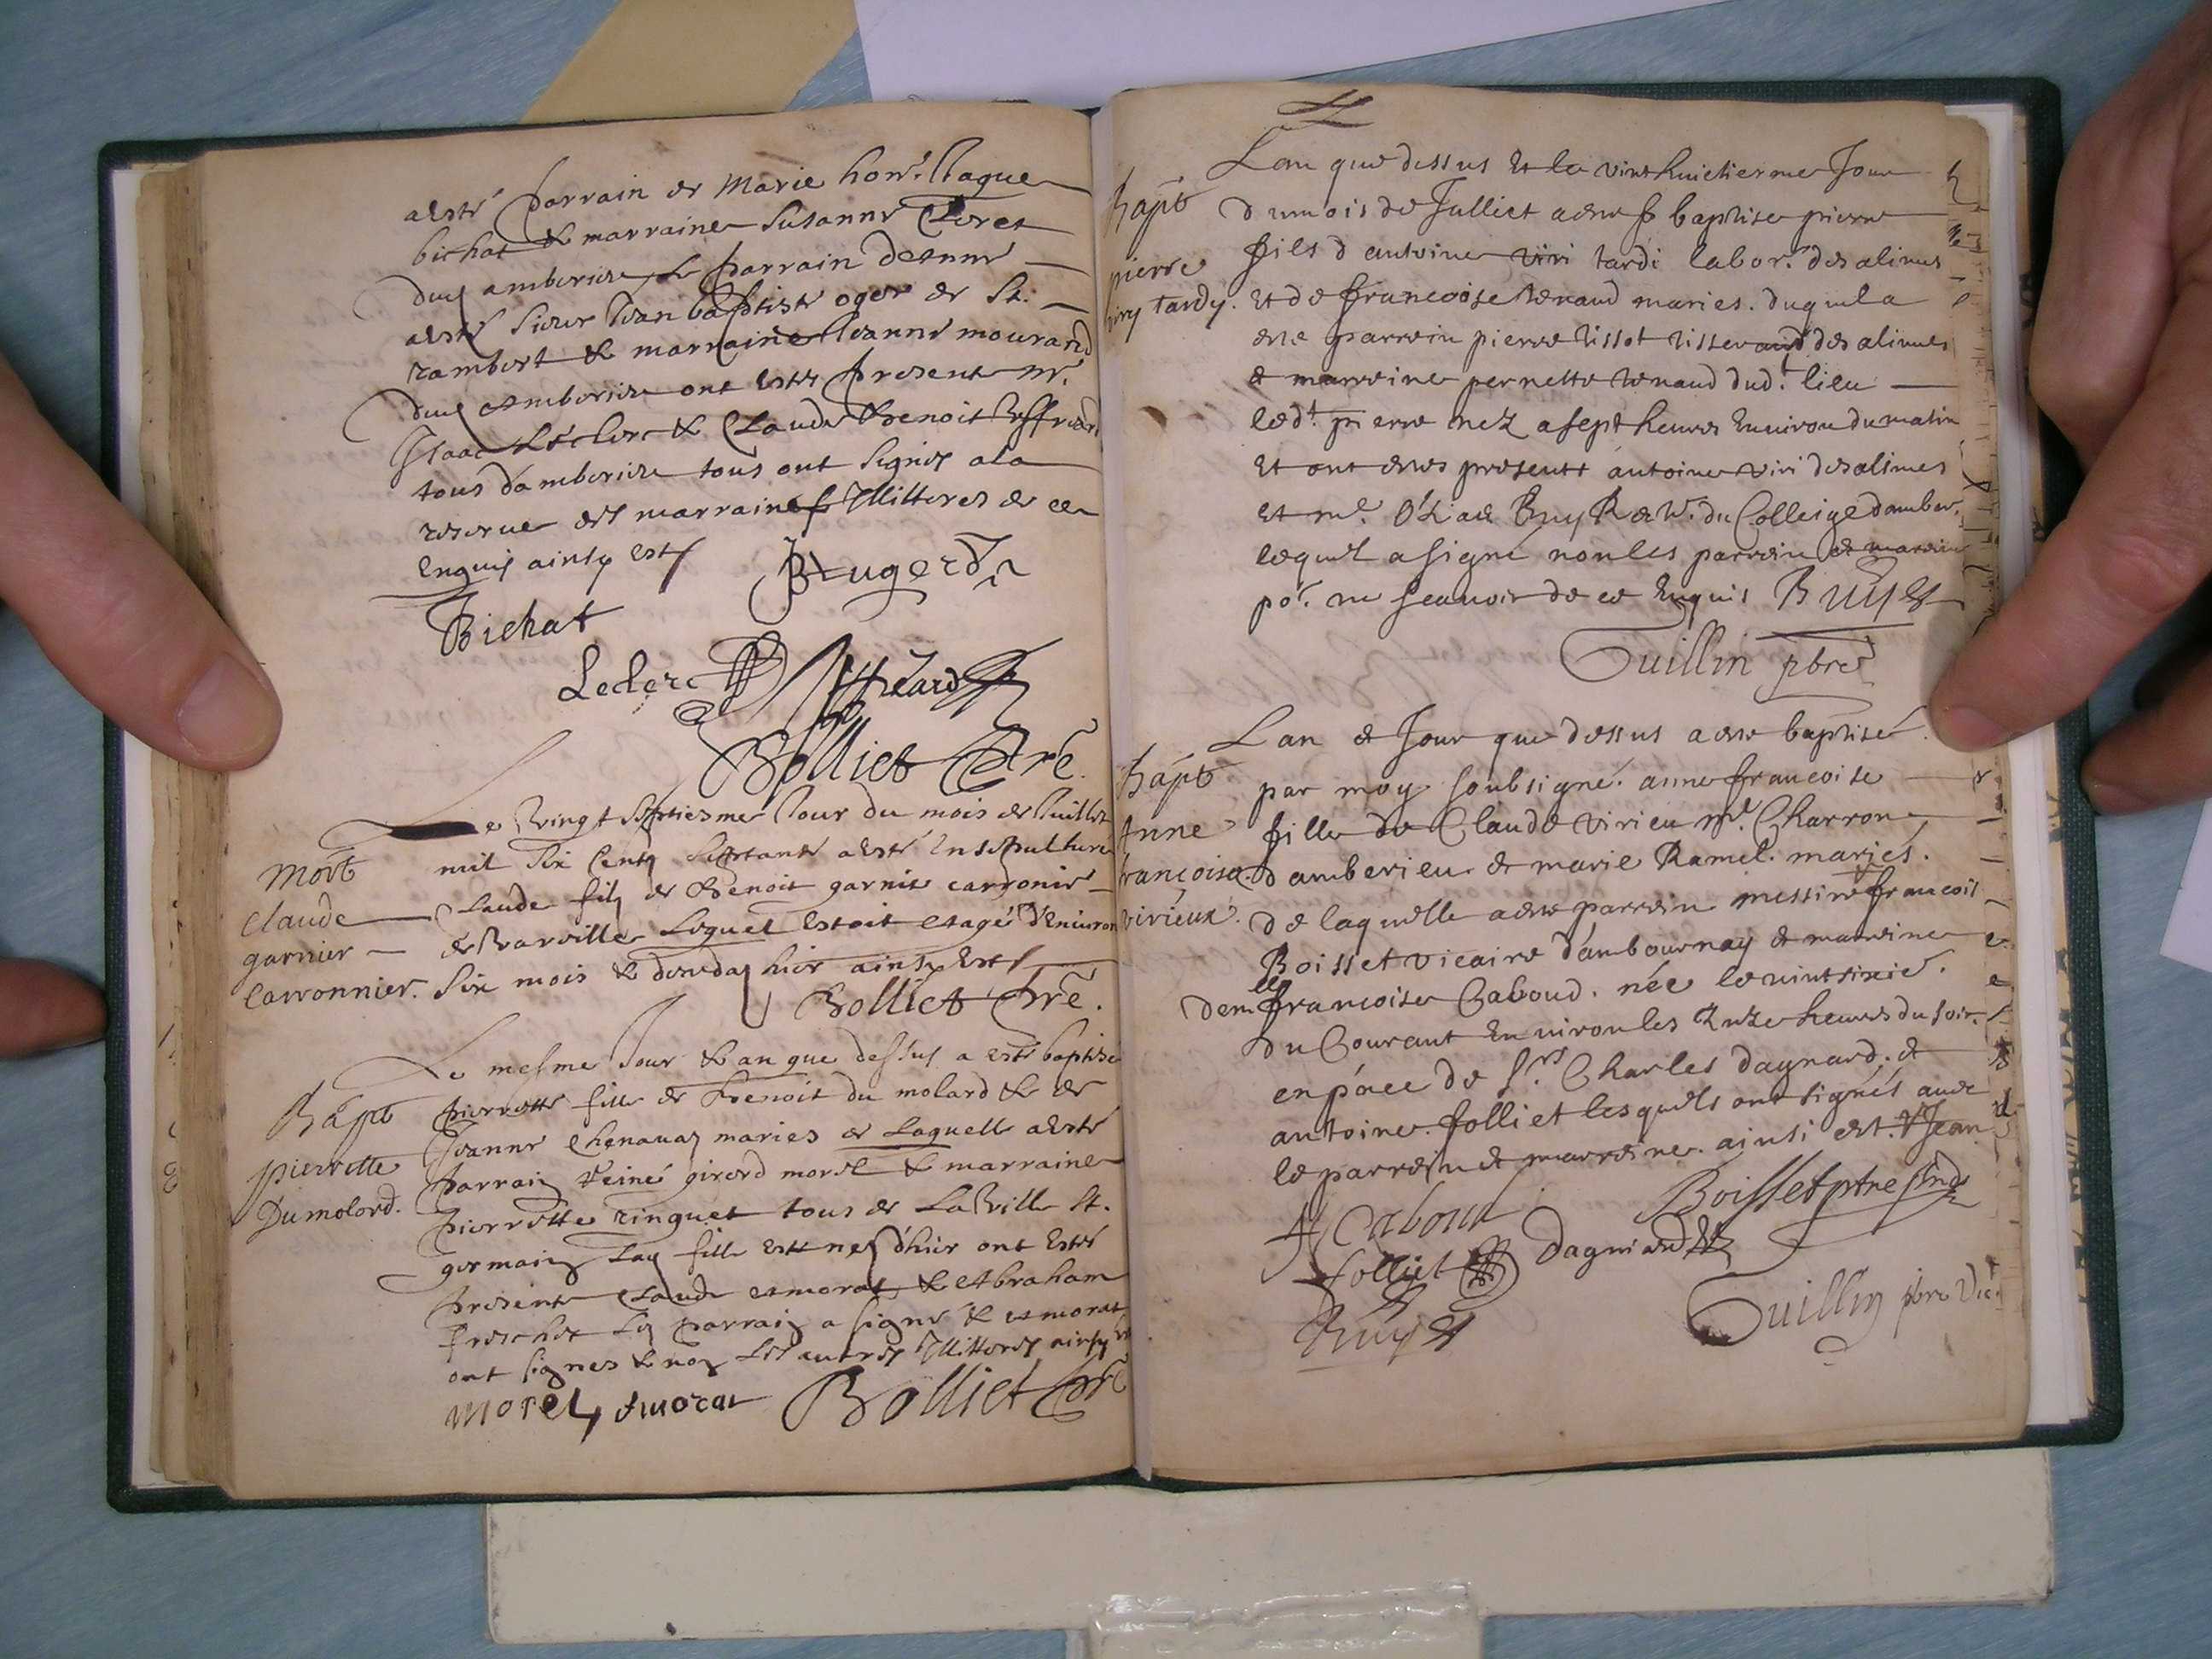 aesté parrain de Marie hon. Jaque
bichat & marraine Susanne
duq amberieu, Le parrain
aesté sieur Jean baptiste oger de St.
rambert & marraine Jeanne mourand
duq amberieu ont estés presents mr.
Isaac Leclerc & Claude Benoit
tous d'amberieu tous ont signés a la
reserve des marraines Illitteres de ce
enquis ainsy est
Bichat
Leclerc
Bolliet
Le vingt septiesme Jour du mois de Juillet
mil six cents septante aesté ensepulturé
Claude fils de Benoit garnier carronier
de Lequel estoit aagé d'environ
six mois & hier ainsy est
Bolliet pre.
Mort
Claude
garnier
Carronnier.
Le mesme Jour & an que dessus a esté baptisé
pierrette fille de Benoit du molard & de
Jeanne chenavaz maries de Laquelle aesté
parrain girard morel & marraine
pierrette ringuet tous de La Ville St.
germain Laq fille est née d'hier ont estés
presents Claude esmorat & Abraham
Le parrain a signé & esmorat
ont signes & non Les autres Illitterés ainsy est
morel emorat Bolliet pre
Bapt
pierrette
Dumolard.
Lan que dessus et le vint huictiesme Jour
du mois de Julliet a este baptise pierre
fils d antoine viri tardi labor. des alimes
et de francoise Renaud maries. duquel a
este parrein pierre tissot tisserand des alimes
& marreine pernette Renaud dud.t lieu
led.t pierre nez a sept heures Environ du matin
Et ont estes presents antoine viri des alimes
Et m.e Buy du Colleige damber.
lequel a signé non les parrein & marreine
po.r ne scavoir de ce Enquis Buy
Guillin pbre
Bapt
pierre
viry tardy.
Lan & Jour que dessus a este baptisé
par moy soubsigné. anne francoise
fille de Claude virieu m.e Charron
d amberieu & marie Ramel. mariés.
de laquelle a este parrein messire francois
Boisset vicaire d'ambournay & marreine
dem.elle francoise Caboud. née le vint sixié.
du Courant Environ les Unze heures du soir.
en pnce de s.rs Charles dagnard, &
antoine folliet lesquels ont signés avec
le parrein & marreine. ainsi est.
Bapt
Anne
francoise
virieux.
Caboud
Boisset
folliet
Dagniard
Buy
Guillin pbre Vic.